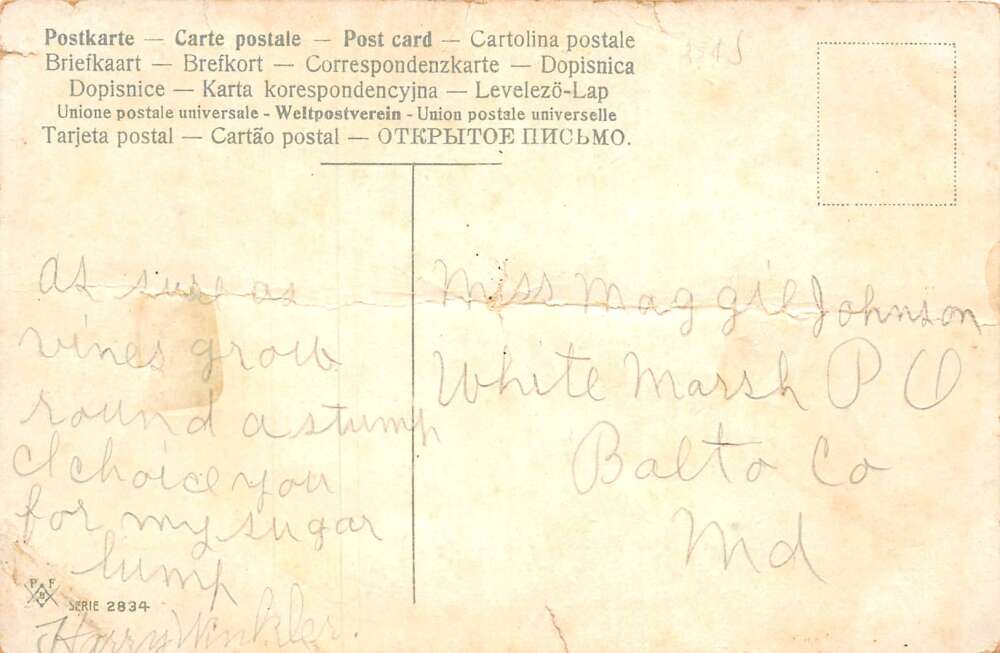 Postkarte — Carte postale — Post card — Cartolina postale
Briefkaart — Brefkort — Correspondenzkarte — Dopisnica
Dopisnice — Karta korespondencyjna — Levelezö-Lap
Unione postale universale - Weltpostverein - Union postale universelle
Tarjeta postal — Cartão postal — ОТКРЫТОЕ ПИСЬМО.
As sure as
vines grow
round a stump
I choice you
for my sugar
lump
P F
B
SERIE 2834
Harry Winkler.
Miss Maggie Johnson
White Marsh P O
Balto Co
Md